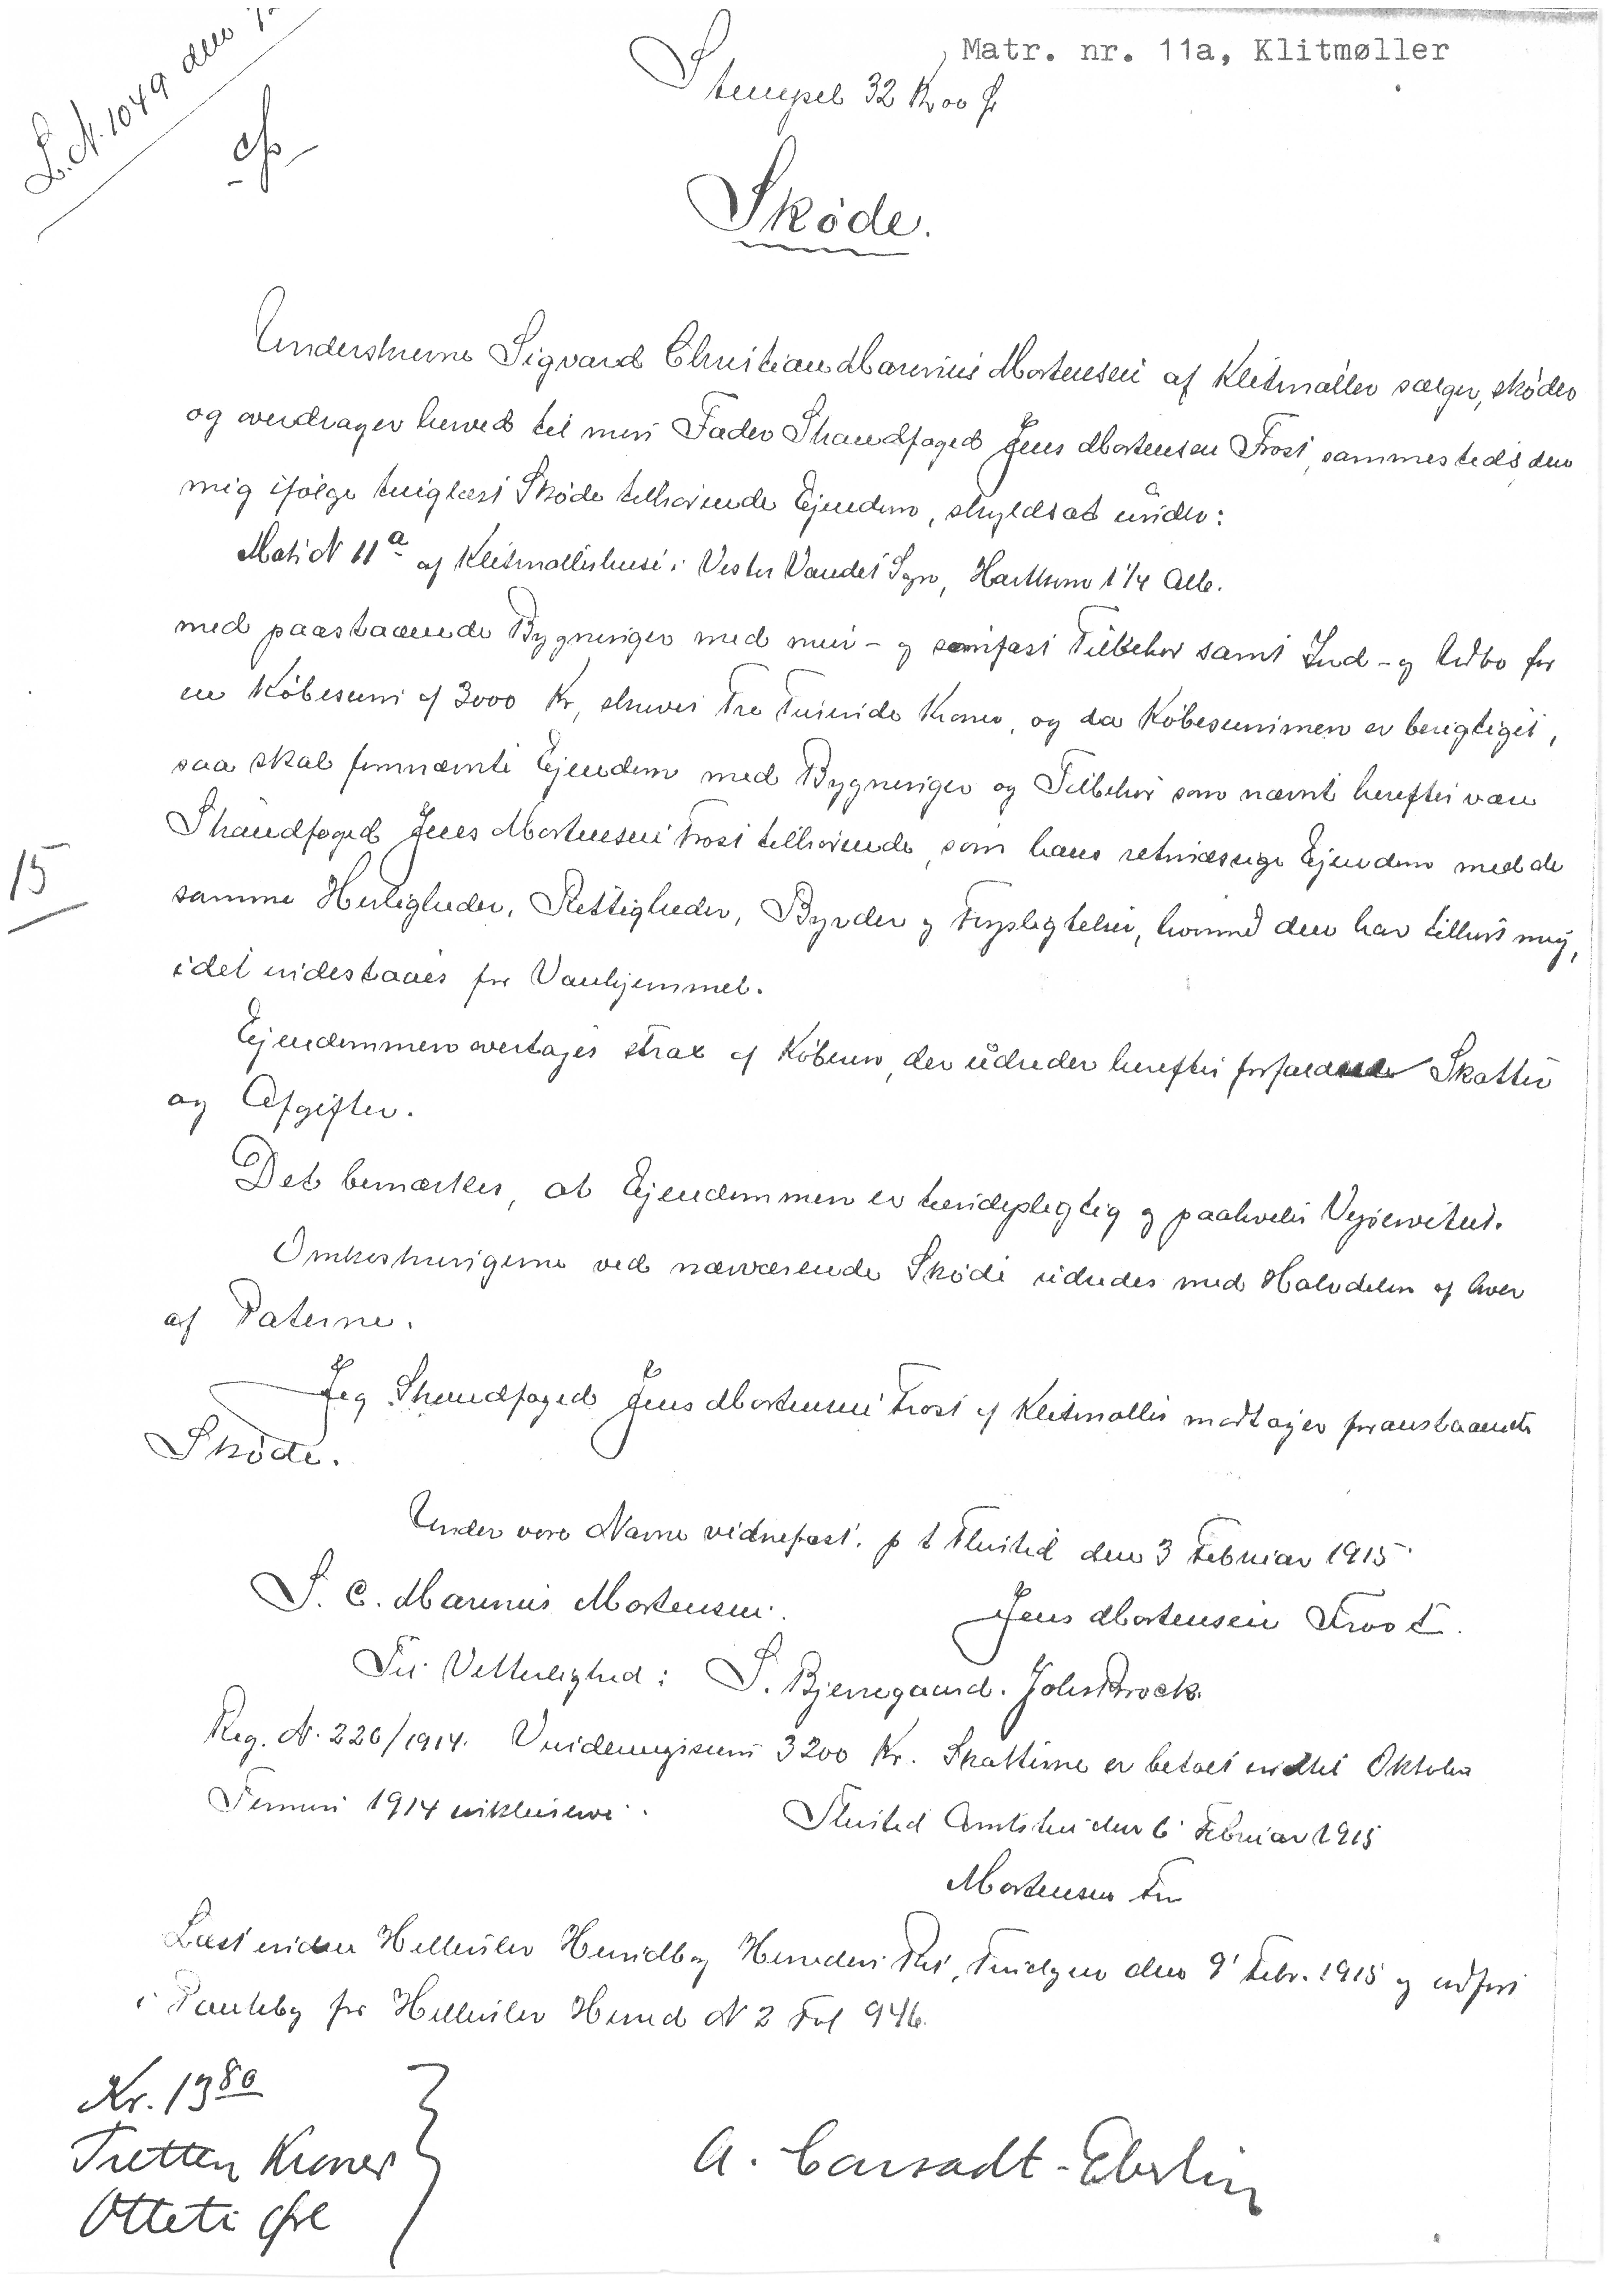 L. N. 1049 den
Matr. nr. 11a, Klitmøller
Stempel 32 Kr 00 Ø
Skøde.
Underskrevne Sigvard Christian Marinus Mortensen af Klitmøller sælger, skøder
og overdrager herved til min Fader Strandfoged Jens Mortensen Frost sammesteds den
mig ifølge tinglæst Skøde tilhørende Ejendom, skyldsat under:
Matr N 11a af Klitmøllerhuse i Vester Vandet Sogn, Hartkorn 1 1/4 Alb.
med paastaaende Bygninger med mur- og sømfast Tilbehør samt Ind- og Udbo for
en Købesum af 3000 Kr, skriver Tre Tusinde Kroner, og da Købesummen er berigtiget,
saa skal fornævnte Ejendom med Bygninger og Tilbehør som nævnt herefter være
Strandfoged Jens Mortensen Frost tilhørende, som hans retmæssige Ejendom med de
15
samme Herligheder, Rettigheder, Byrder og Forpligtelser, hvormed den har tilhørt mig,
idet indestaaes for Vanhjemmel.
Ejendommen overtages strax af Køberen, der udreder herefter forfaldende Skatter
og Afgifter.
Det bemærkes, at Ejendommen er tiendepligtig og paahviler Vejservitut.
Omkostningerne ved nærværende Skøde udredes med Halvdelen af hver
af Parterne.
Jeg Strandfoged Jens Mortensen Frost af Klitmøller modtager foranstaaende
Skøde.
Under vore Navne vidnefast. p t Thisted den 3 Februar 1915
S. C. Marinus Mortensen. Jens Mortensen Frost.
Til Vitterlighed: S. Bjerregaard. John Brock.
Reg. N. 220/1914. Vurderingssum 3200 Kr. Skatterne er betalt indtil Oktober
Termin 1914 inklusive. Thisted Amtstue den 6 Februar 1915
Mortensen Fm
Læst inden Hillerslev Hundborg Herreders Ret, Tirsdagen den 9' Febr. 1915 og udført
i Panteb. for Hillerslev Herred N 2 Fol 946.
Kr. 13 80
Tretten Kroner
Otteti Øre
A. Carstadt-Eberlin